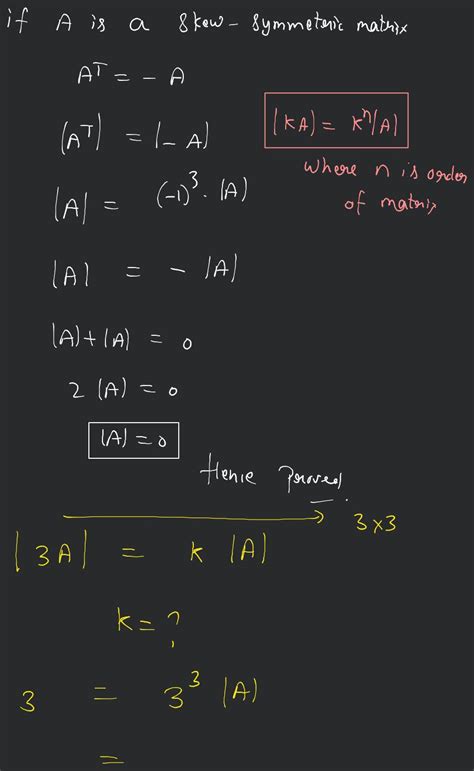 if A is a skew-symmeteric matrix
Aᵀ = - A
|Aᵀ| = |- A|
|kA| = kⁿ|A|
where n is order
of matrix
|A| = (-1)³ . |A|
|A| = - |A|
|A| + |A| = 0
2 |A| = 0
|A| = 0
Hence proved.
3x3
|3A| = k |A|
k = ?
3 = 3³ |A|
=